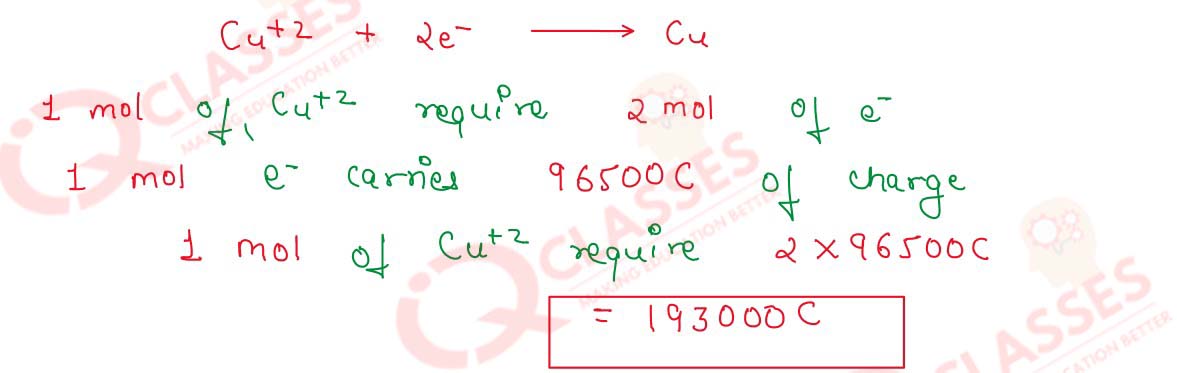 Cu+2 + 2e⁻ ⟶ Cu
1 mol of, Cu+2 require 2 mol of e⁻
1 mol e⁻ carries 96500C of charge
1 mol of Cu+2 require 2 × 96500C
= 193000C
IQ CLASSES
MAKING EDUCATION BETTER
IQ CLASSES
MAKING EDUCATION BETTER
CLASSES
EDUCATION BETTER